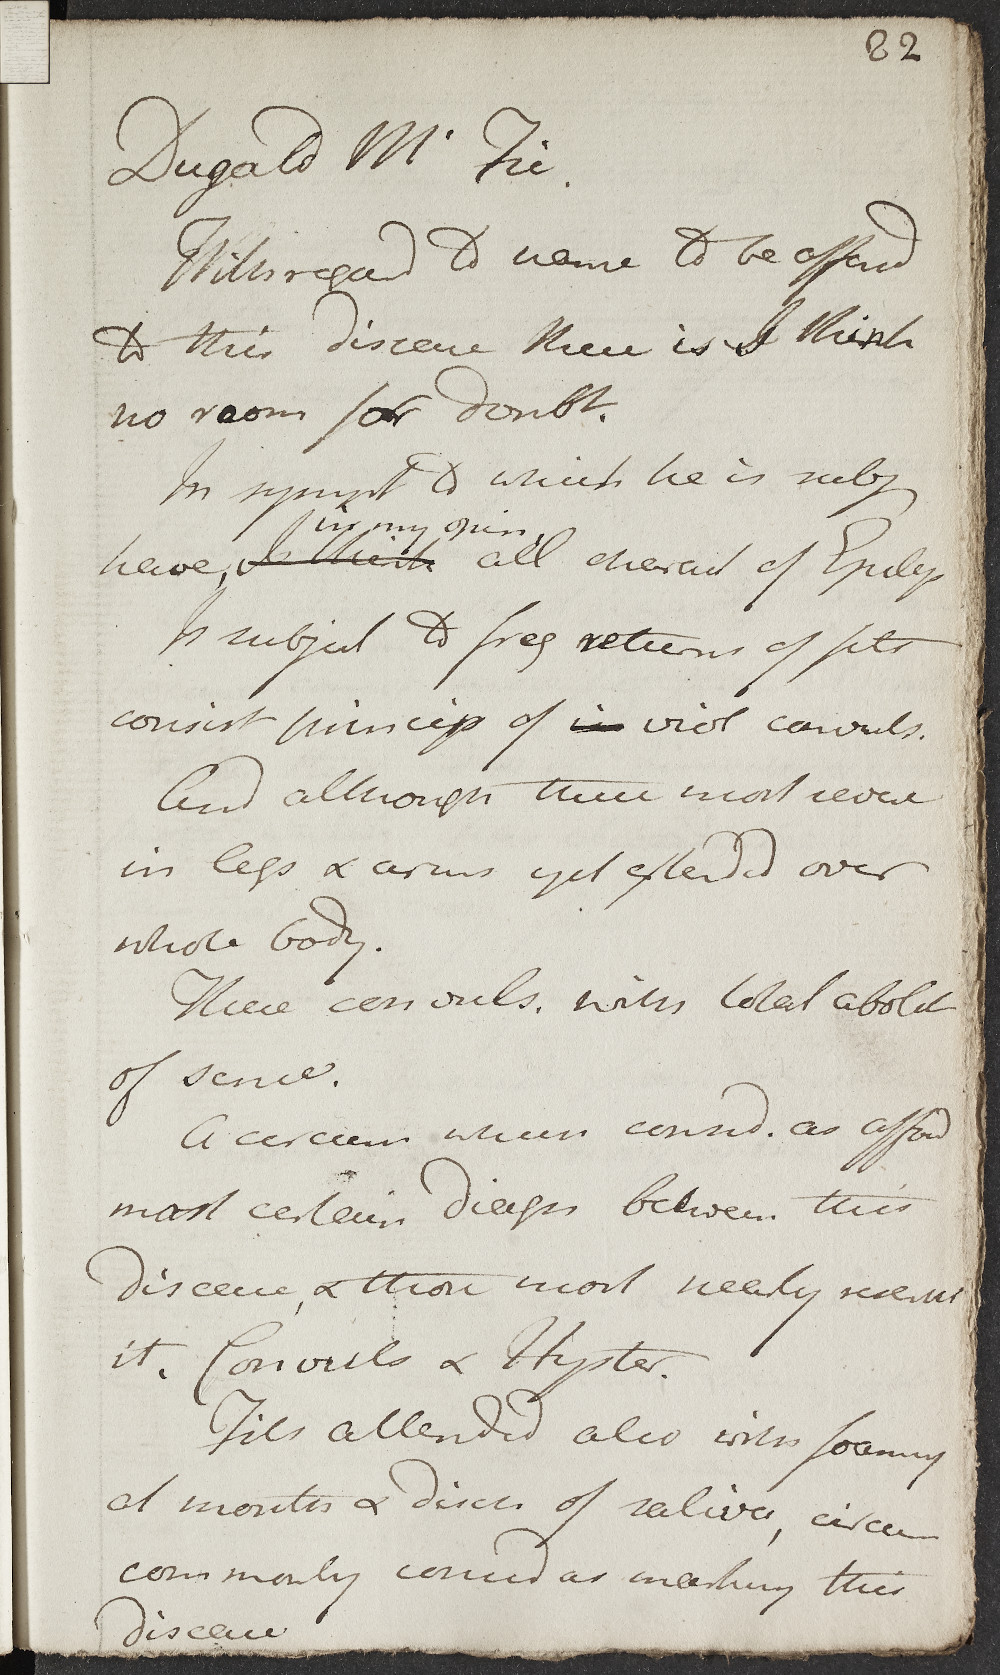 82
Dugald Mc Fie.
With regard to name to be affixed
to this disease there is I think
no room for doubt.
In sympt to which he is subj
in my opin.
have, I think all charact of Epilep
Is subject to freq returns of fits
consist princip of in viol convuls.
And although these most severe
in legs & arms yet extended over
whole body.
These convuls. with total abolit
of sense.
A circum when consid. as afford
most certain diagn between this
disease, & those most nearly resem
it. Convuls & Hyster.
Fits attended also with foaming
at mouth & disch of saliva, circum
commonly consid as marking this
disease